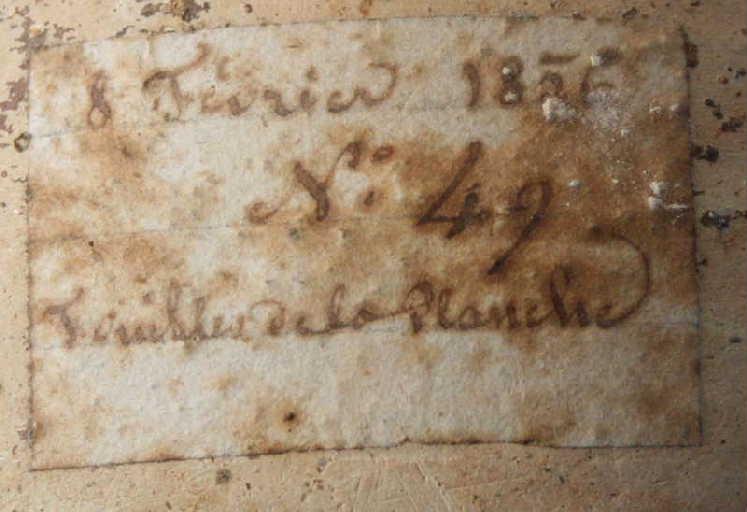 8 Février 1826
N.º 49
Fouilles de la Planche